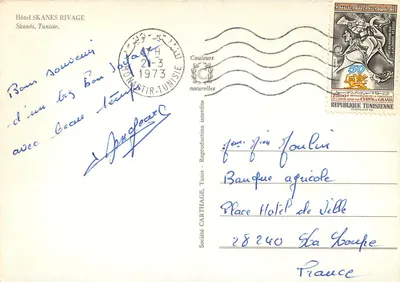 Hôtel SKANES RIVAGE
Skanès, Tunisie.
Bons souvenir
d'un bon voyage
avec beau temps
21-3
1973
MONASTIR-TUNISIE
Couleurs
naturelles
Société CARTHAGE, Tunis - Reproduction interdite
REPUBLIQUE TUNISIENNE
Moulin
Banque agricole
Place Hotel de Ville
28240 La Loupe
France